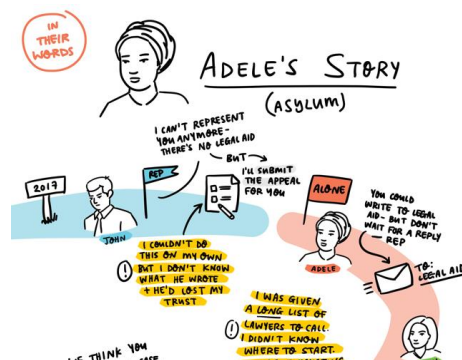 IN
THEIR
WORDS
ADELE'S STORY
(ASYLUM)
I CAN'T REPRESENT
YOU ANYMORE -
THERE'S NO LEGAL AID
BUT
I'LL SUBMIT
THE APPEAL
FOR YOU
2017
REP
JOHN
I COULDN'T DO
THIS ON MY OWN
! BUT I DON'T KNOW
WHAT HE WROTE
+ HE'D LOST MY
TRUST
ALONE
ADELE
YOU COULD
WRITE TO LEGAL
AID - BUT DON'T
WAIT FOR A REPLY
- REP
TO:
LEGAL AID
I WAS GIVEN
A LONG LIST OF
! LAWYERS TO CALL.
I DIDN'T KNOW
WHERE TO START.
THINK YOU